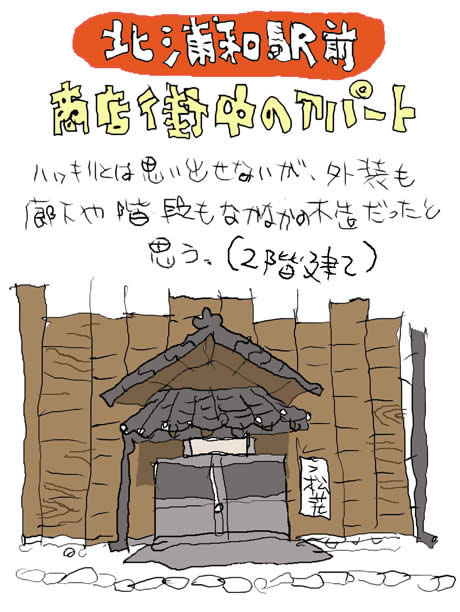 北浦和駅前
商店街中のアパート
ハッキリとは思い出せないが、外装も
廊下や階段もなかなかの木造だったと
思う。(2階建て)
松荘